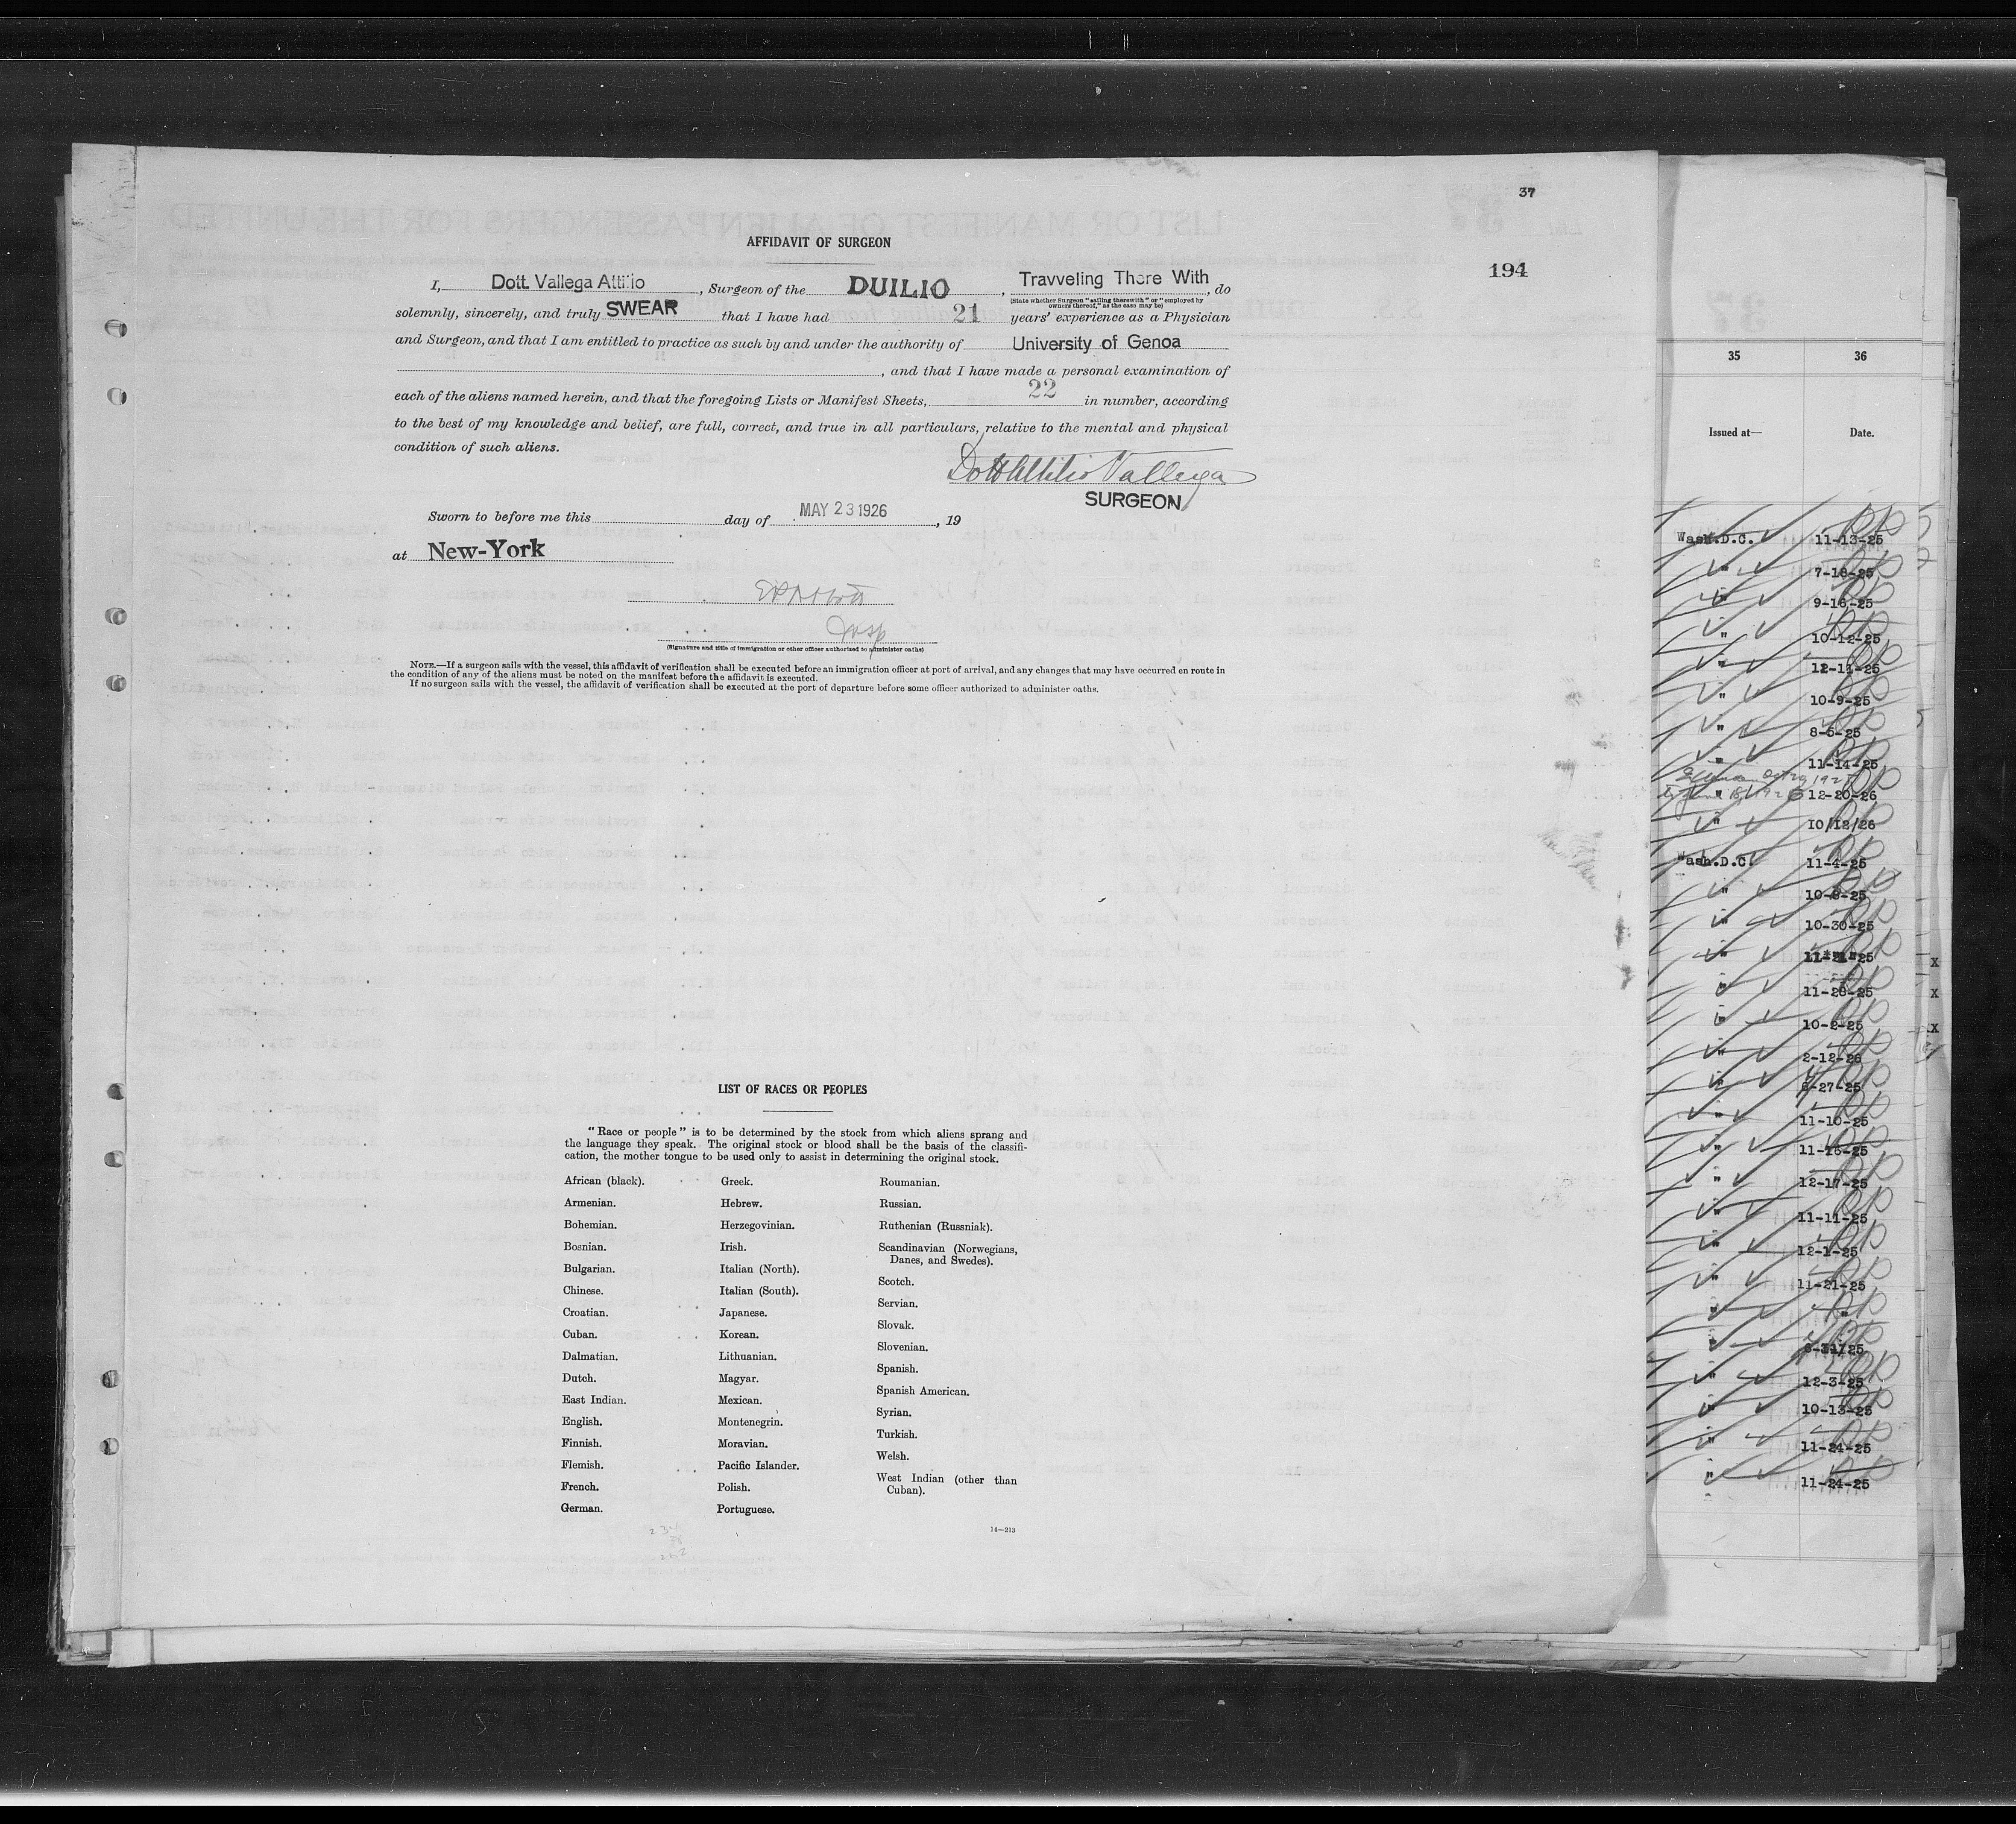 37
194
AFFIDAVIT OF SURGEON
I, Dott. Vallega Attilio, Surgeon of the DUILIO, Travveling There With, do
(State whether Surgeon "sailing therewith" or "employed by
owners thereof," as the case may be)
solemnly, sincerely, and truly SWEAR that I have had 21 years' experience as a Physician
and Surgeon, and that I am entitled to practice as such by and under the authority of University of Genoa
, and that I have made a personal examination of
each of the aliens named herein, and that the foregoing Lists or Manifest Sheets, 22 in number, according
to the best of my knowledge and belief, are full, correct, and true in all particulars, relative to the mental and physical
condition of such aliens.
Dott Attilio Vallega
SURGEON
Sworn to before me this day of MAY 23 1926, 19
at New-York
Insp
(Signature and title of immigration or other officer authorized to administer oaths)
NOTE.—If a surgeon sails with the vessel, this affidavit of verification shall be executed before an immigration officer at port of arrival, and any changes that may have occurred en route in
the condition of any of the aliens must be noted on the manifest before the affidavit is executed.
If no surgeon sails with the vessel, the affidavit of verification shall be executed at the port of departure before some officer authorized to administer oaths.
LIST OF RACES OR PEOPLES
"Race or people" is to be determined by the stock from which aliens sprang and
the language they speak. The original stock or blood shall be the basis of the classifi-
cation, the mother tongue to be used only to assist in determining the original stock.
African (black).
Armenian.
Bohemian.
Bosnian.
Bulgarian.
Chinese.
Croatian.
Cuban.
Dalmatian.
Dutch.
East Indian.
English.
Finnish.
Flemish.
French.
German.
Greek.
Hebrew.
Herzegovinian.
Irish.
Italian (North).
Italian (South).
Japanese.
Korean.
Lithuanian.
Magyar.
Mexican.
Montenegrin.
Moravian.
Pacific Islander.
Polish.
Portuguese.
Roumanian.
Russian.
Ruthenian (Russniak).
Scandinavian (Norwegians,
Danes, and Swedes).
Scotch.
Servian.
Slovak.
Slovenian.
Spanish.
Spanish American.
Syrian.
Turkish.
Welsh.
West Indian (other than
Cuban).
14—213
35 36
Issued at— Date.
Wash.D.C. 11-13-25
" 7-18-25
" 9-16-25
" 10-12-25
" 12-11-25
" 10-9-25
" 8-5-25
" 11-14-25
" 12-20-26
" 10/12/26
Wash.D.C. 11-4-25
" 10-8-25
" 10-30-25
" 11-21-25
" 11-28-25
" 10-2-25
" 2-12-26
" 8-27-25
" 11-10-25
" 11-16-25
" 12-17-25
" 11-11-25
" 12-1-25
" 11-21-25
" "
" 25
" 12-3-25
" 10-13-25
" 11-24-25
" 11-24-25